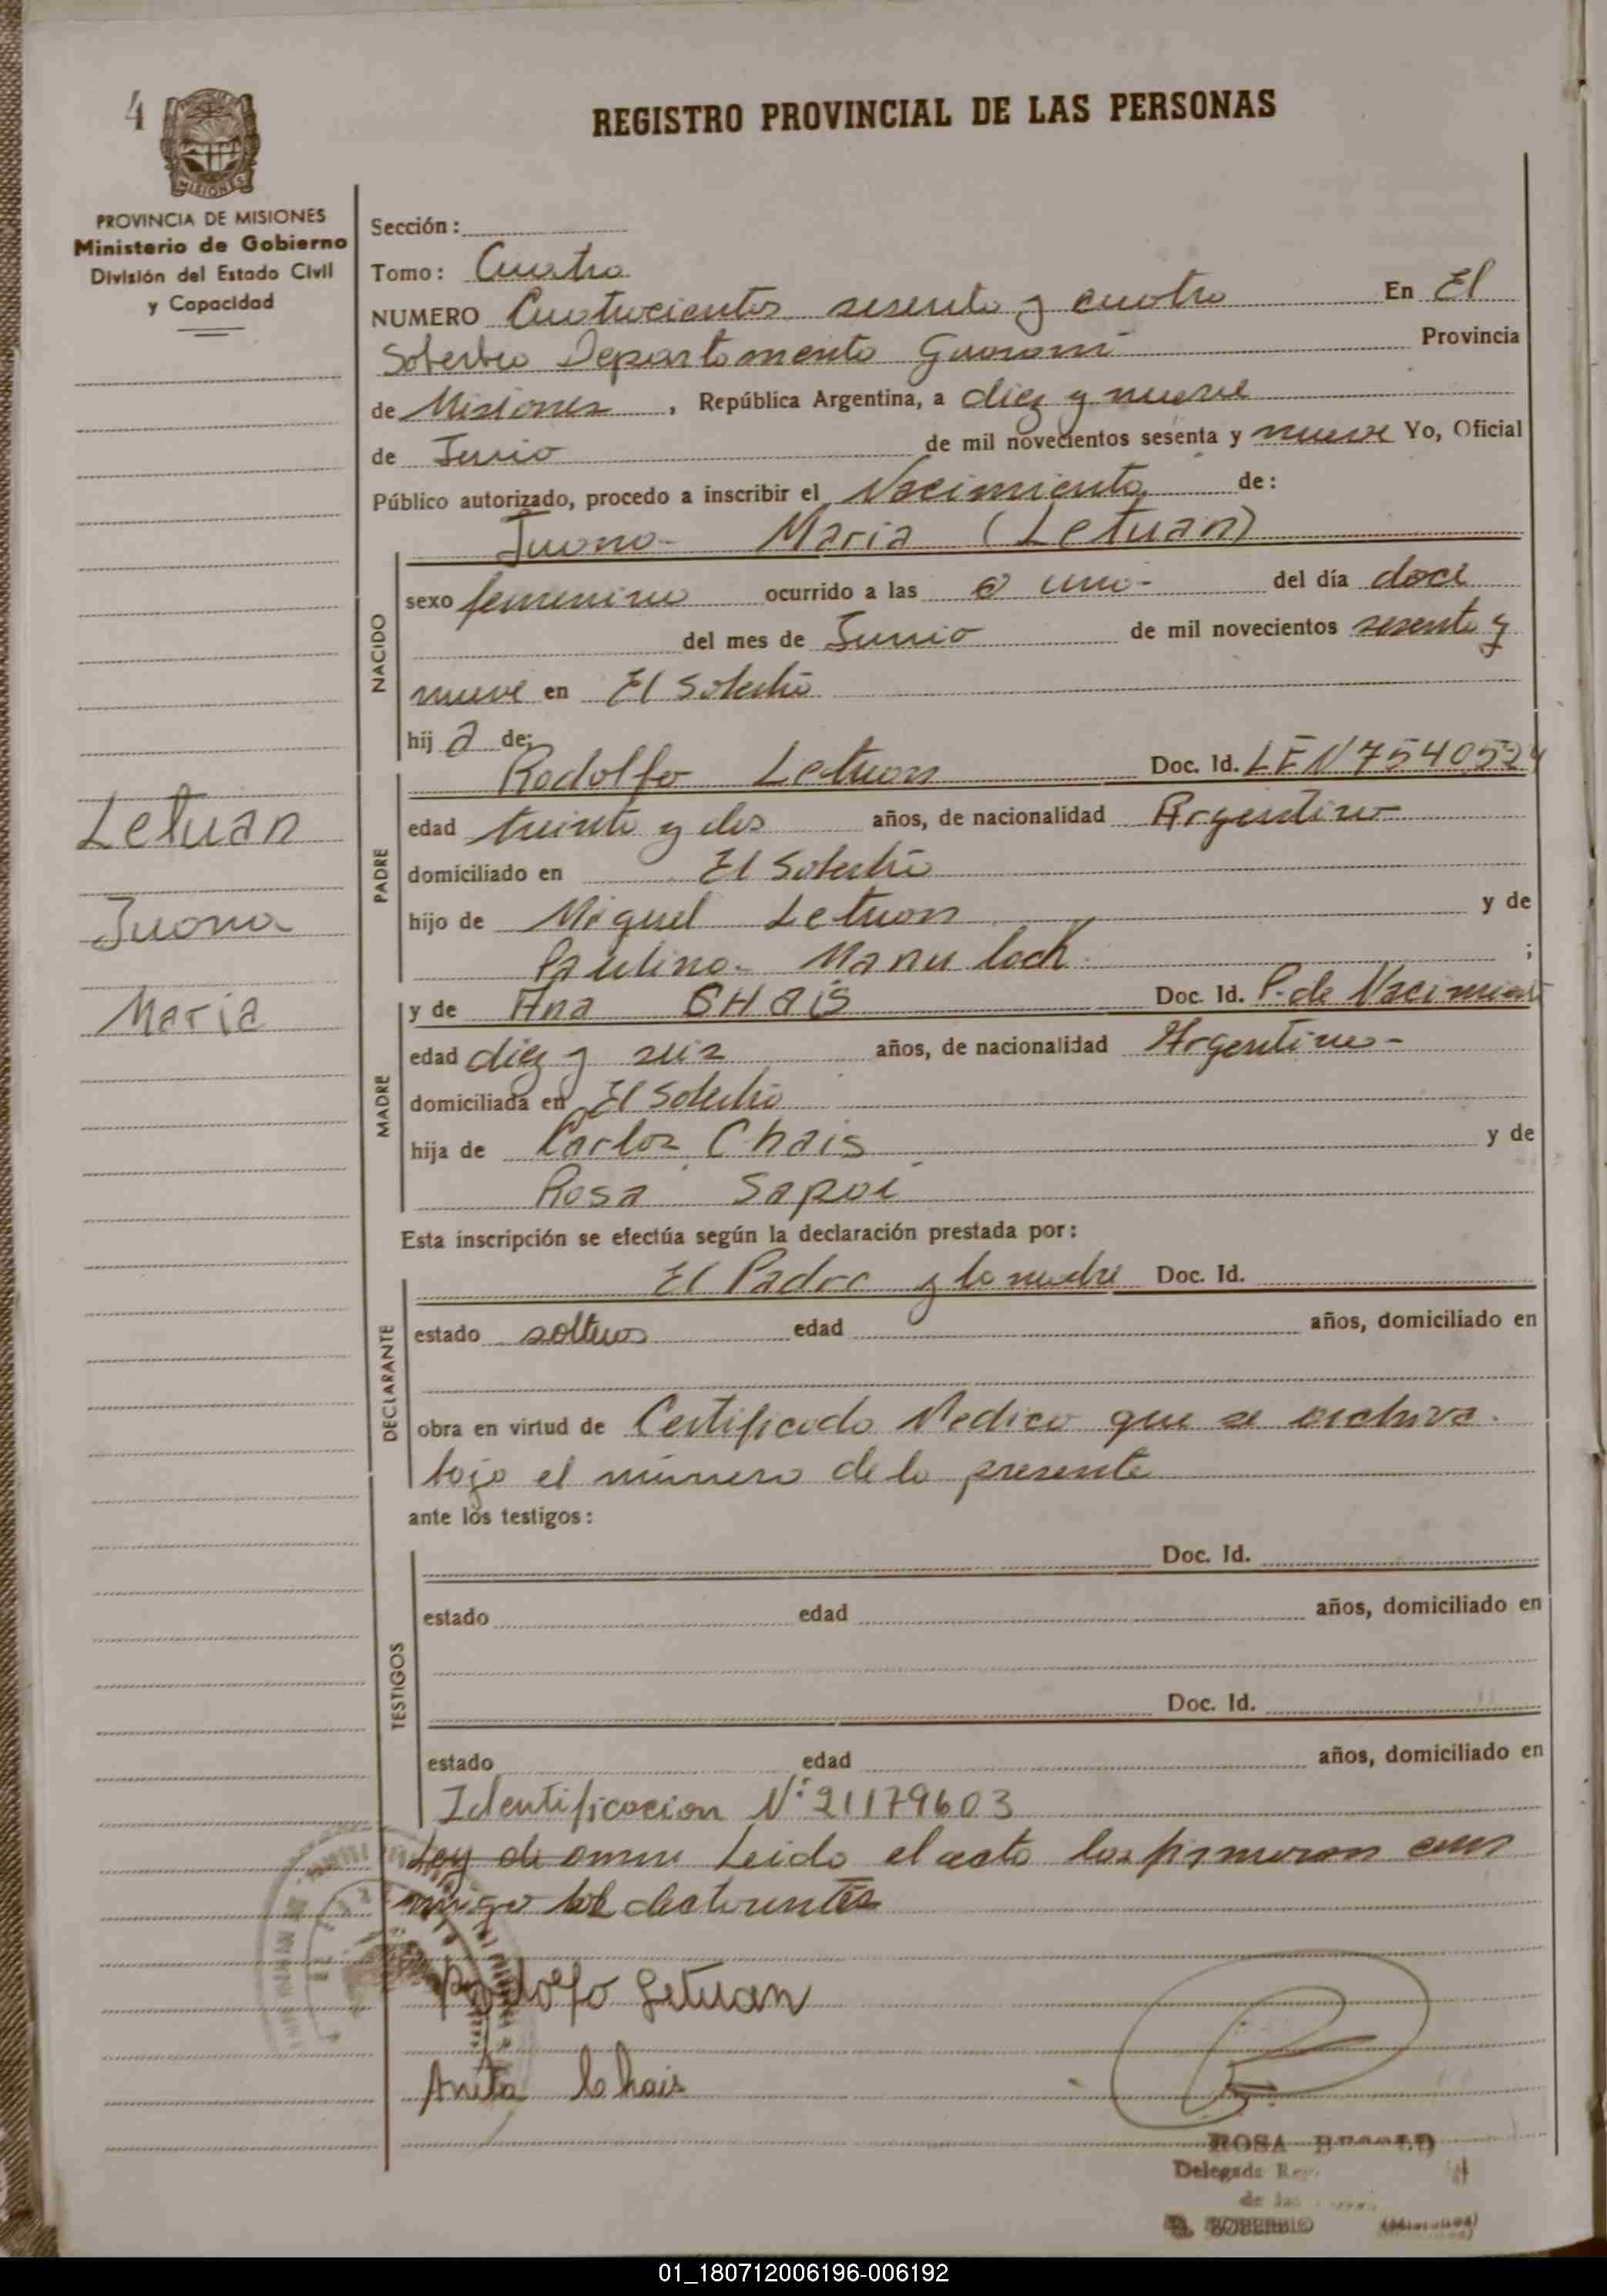 4
REGISTRO PROVINCIAL DE LAS PERSONAS
MISIONES
PROVINCIA DE MISIONES
Ministerio de Gobierno
División del Estado Civil
y Capacidad
Letuan
Juana
Maria
Sección:
Tomo: Cuatro
NUMERO Cuatrocientos sesenta y cuatro En El
Soberbio Departamento Guarani Provincia
de Misiones, República Argentina, a diez y nueve
de Junio de mil novecientos sesenta y nueve Yo, Oficial
Público autorizado, procedo a inscribir el Nacimiento de:
Juana- Maria (Letuan)
NACIDO
sexo femenino ocurrido a las a una- del día doce
del mes de Junio de mil novecientos sesenta y
nueve en El Soberbio
hij a de:
PADRE
Rodolfo Letuan Doc. Id. LE N 7540524
edad treinta y dos años, de nacionalidad Argentino
domiciliado en El Soberbio
hijo de Miguel Letuan y de
Paulina- Manu lack ;
MADRE
y de Ana CHais Doc. Id. P. de Nacimient
edad diez y seis años, de nacionalidad Argentina-
domiciliada en El Soberbio
hija de Carlos Chais y de
Rosa Sapoi
Esta inscripción se efectúa según la declaración prestada por:
DECLARANTE
El Padre y la madre Doc. Id.
estado solteros edad años, domiciliado en
obra en virtud de Certificado Medico que se archiva
bajo el número de la presente
ante los testigos:
TESTIGOS
Doc. Id.
estado edad años, domiciliado en
Doc. Id.
estado edad años, domiciliado en
Identificacion N° 21179603
Leido el acta los firmaron con
migo los declarantes
Rodolfo Letuan
Anita Chais
ROSA
Delegada
de las
EL SOBERBIO (Misiones)
01_180712006196-006192